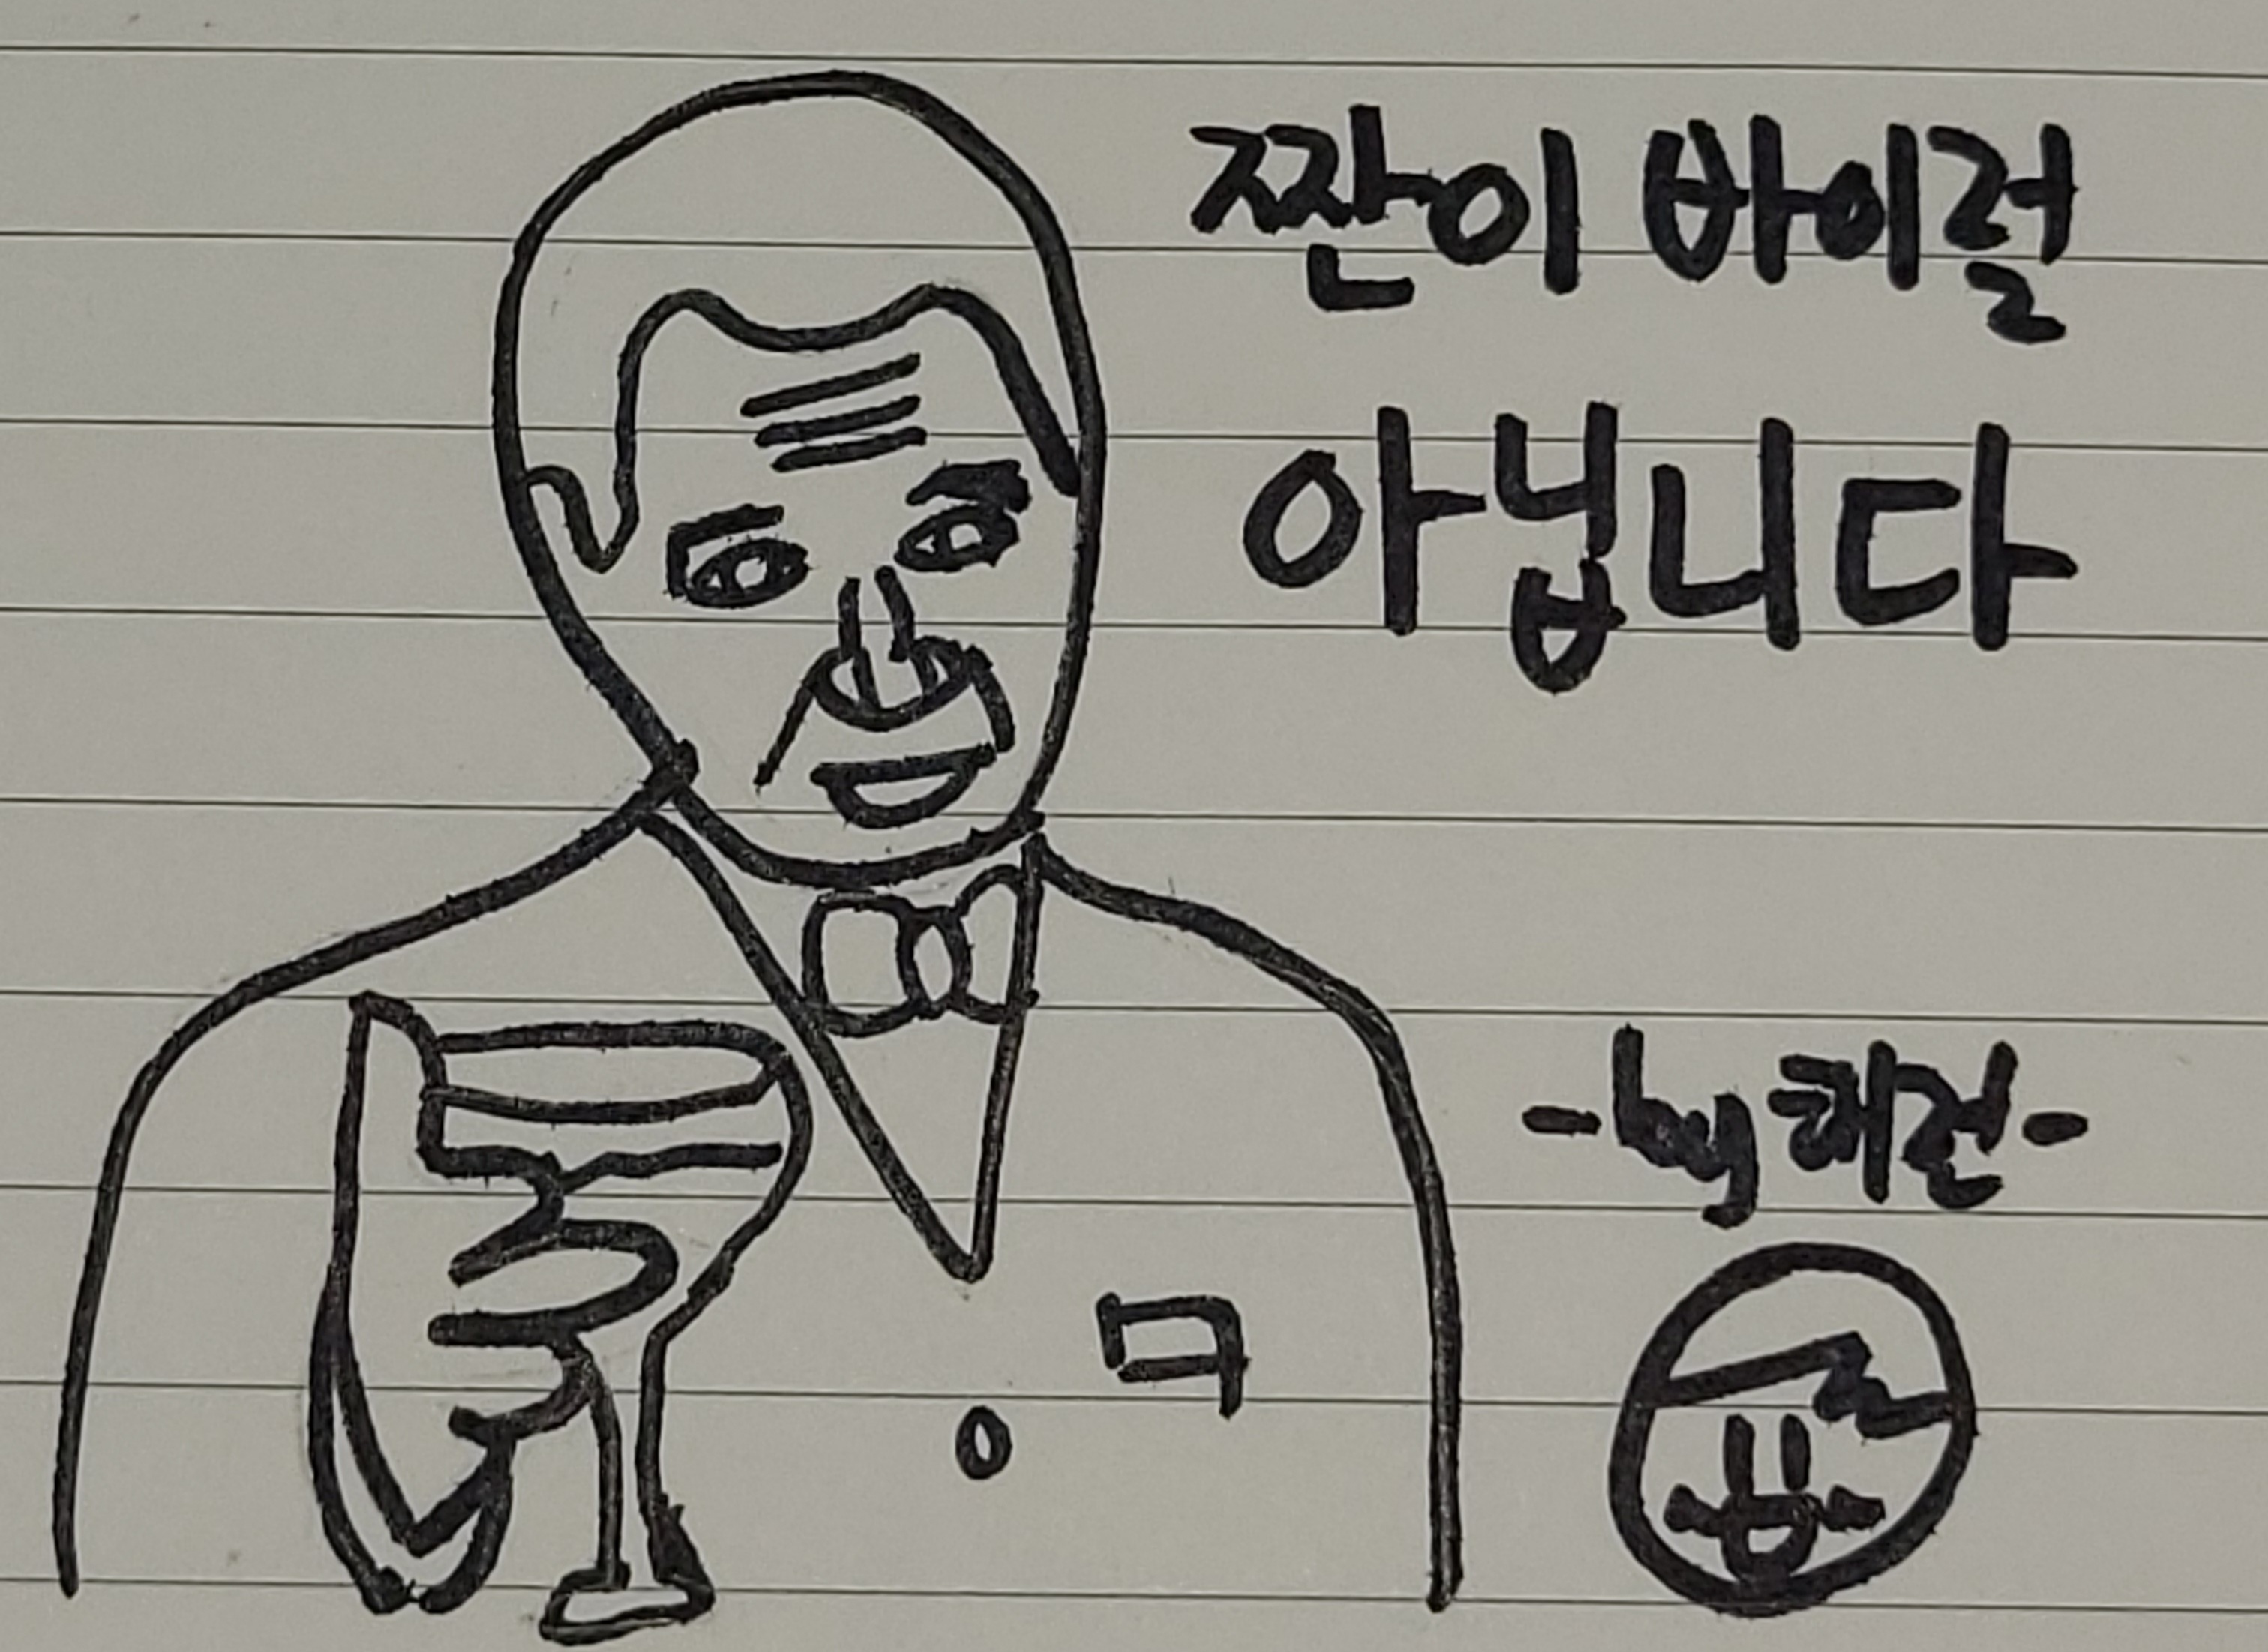 짠이 바이럴
아닙니다
-by 태런-